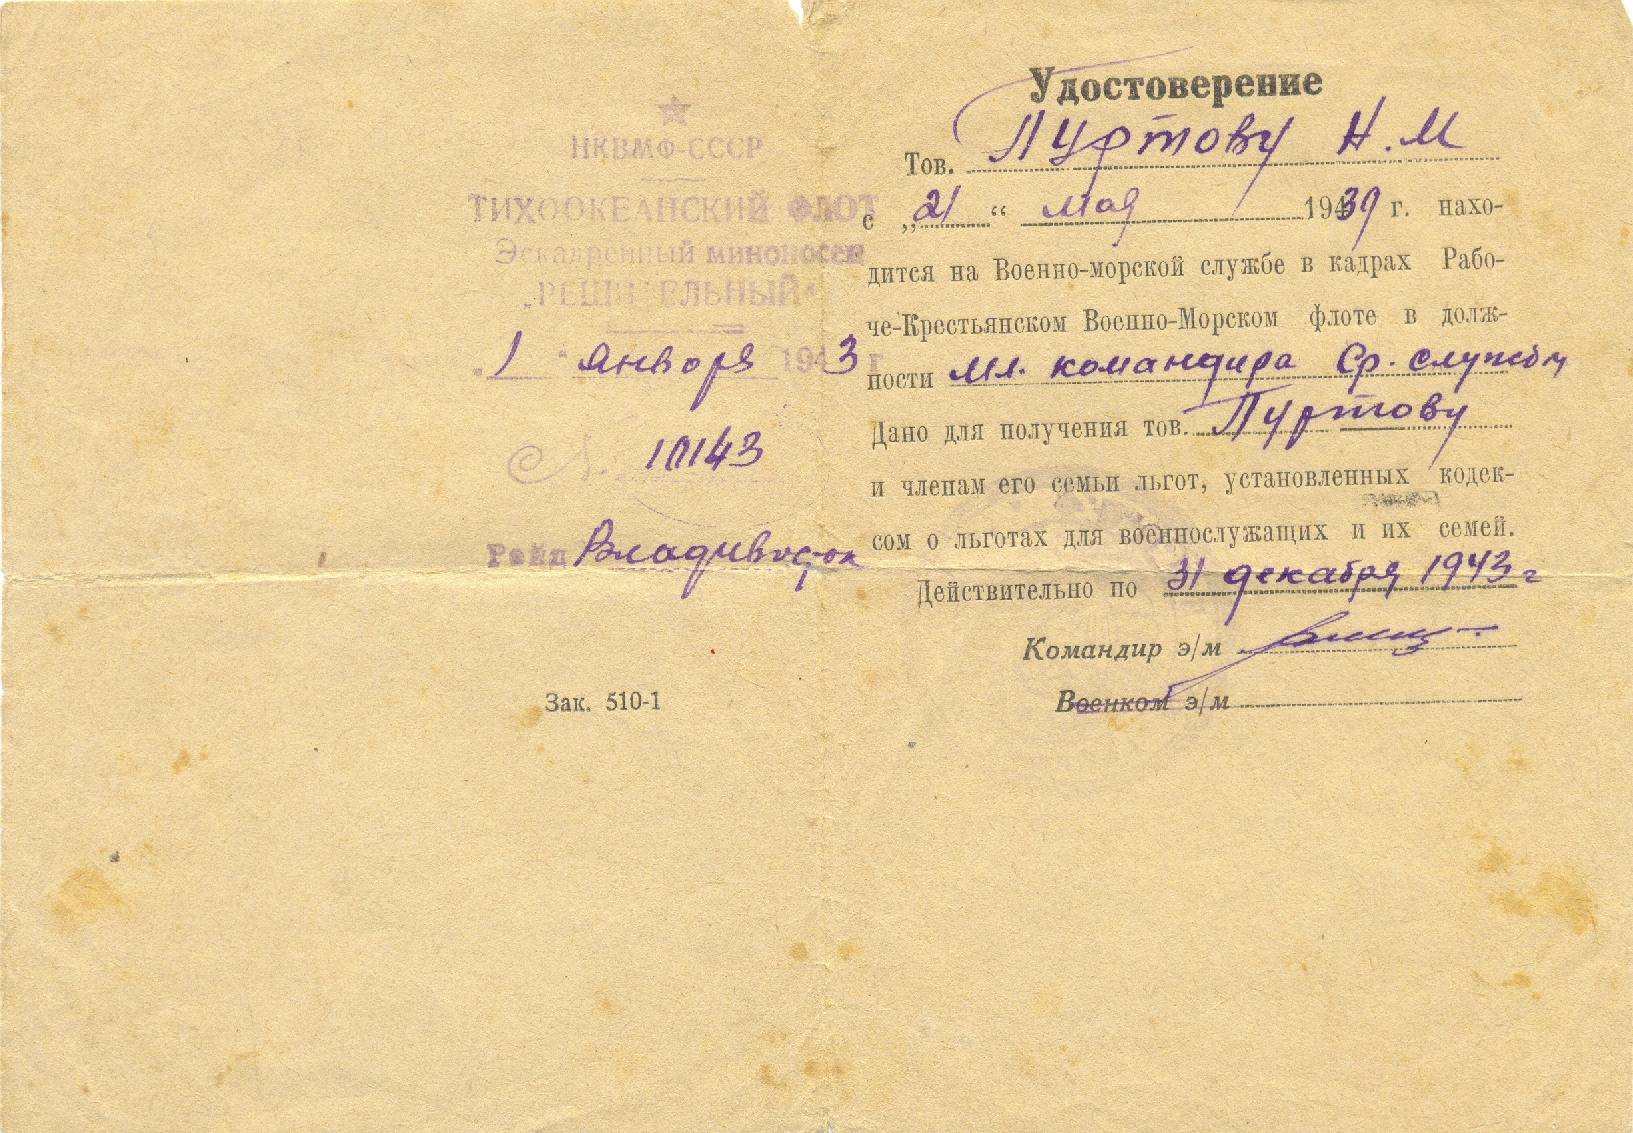 НКВМФ-СССР
ТИХООКЕАНСКИЙ ФЛОТ
Эскадренный миноносец
„РЕШИТЕЛЬНЫЙ“
„1“ января 1943 г
№ 10143
Рейд Владивосток
Зак. 510-1
Удостоверение
Тов. Пуртову Н.М
с „21“ мая 1939 г. нахо-
дится на Военно-морской службе в кадрах Рабо-
че-Крестьянском Военно-Морском флоте в долж-
ности Мл. командира Ср. службы
Дано для получения тов. Пуртову
и членам его семьи льгот, установленных кодек-
сом о льготах для военнослужащих и их семей.
Действительно по 31 декабря 1943 г
Командир э/м
Военком э/м